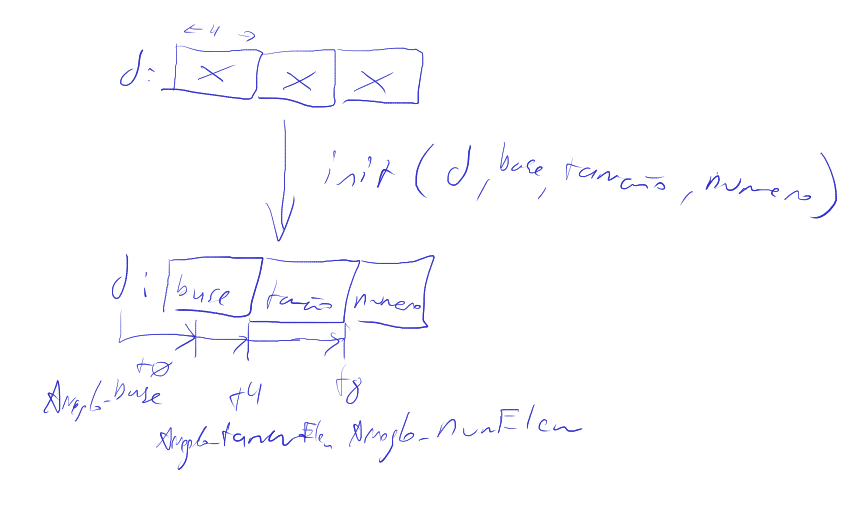 ← 4 →
d: X X X
init (d, base, tamaño, numero)
d: base tamaño numero
+0 +4 +8
Arreglo_base
Arreglo_tamanElem Arreglo_numElem